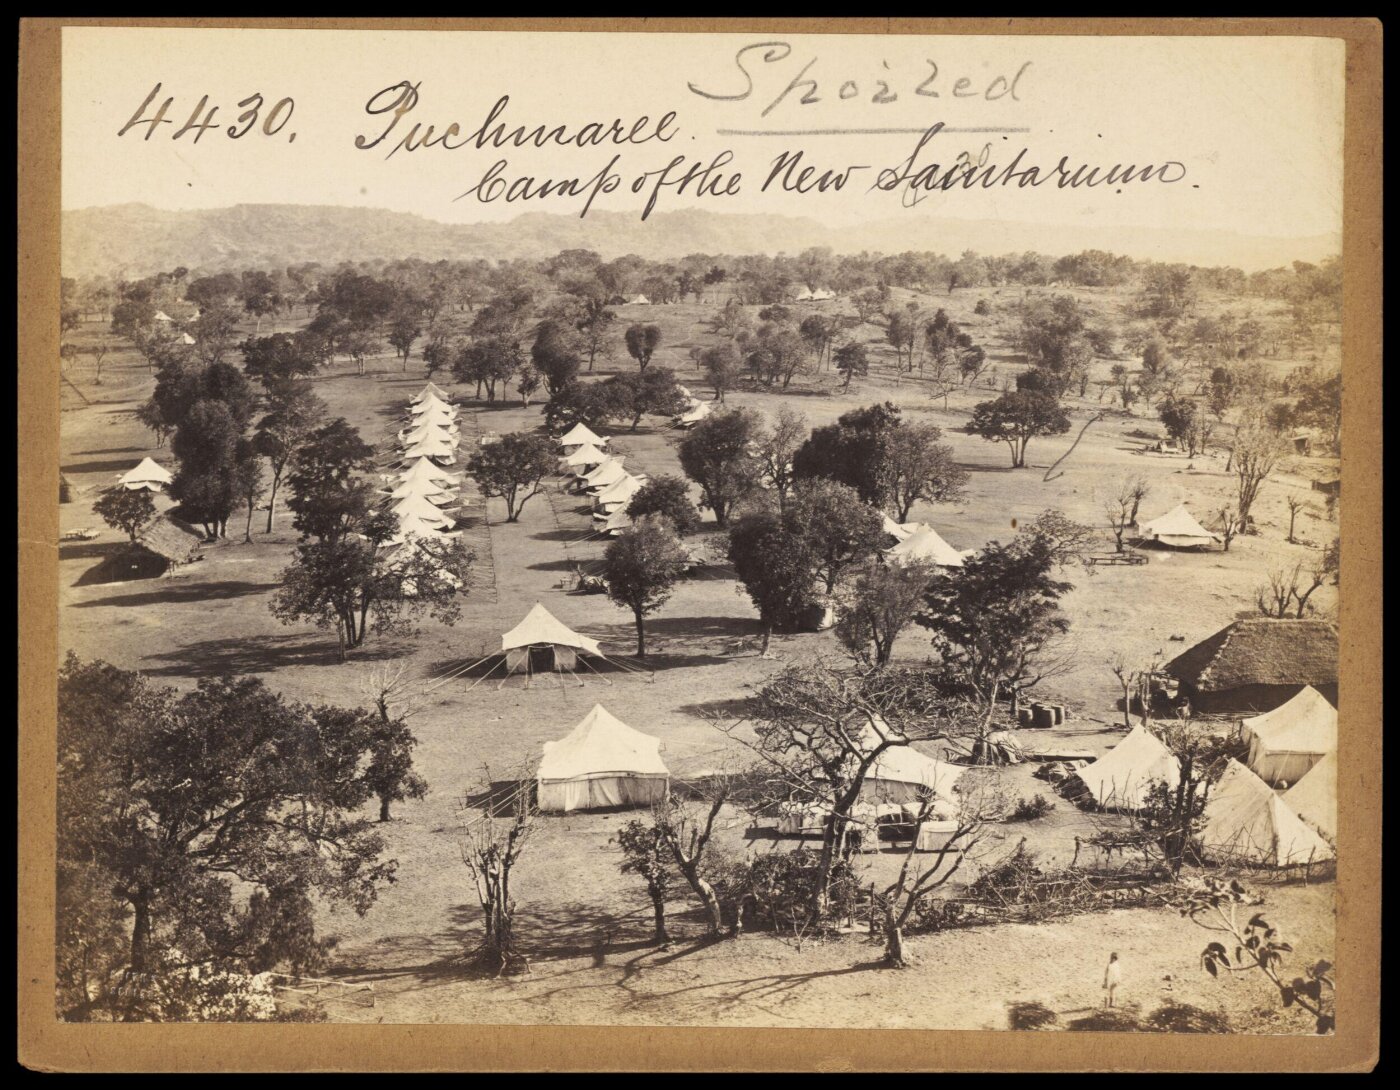 Spoiled
4430. Puchmaree.
Camp of the New Sanitarium.